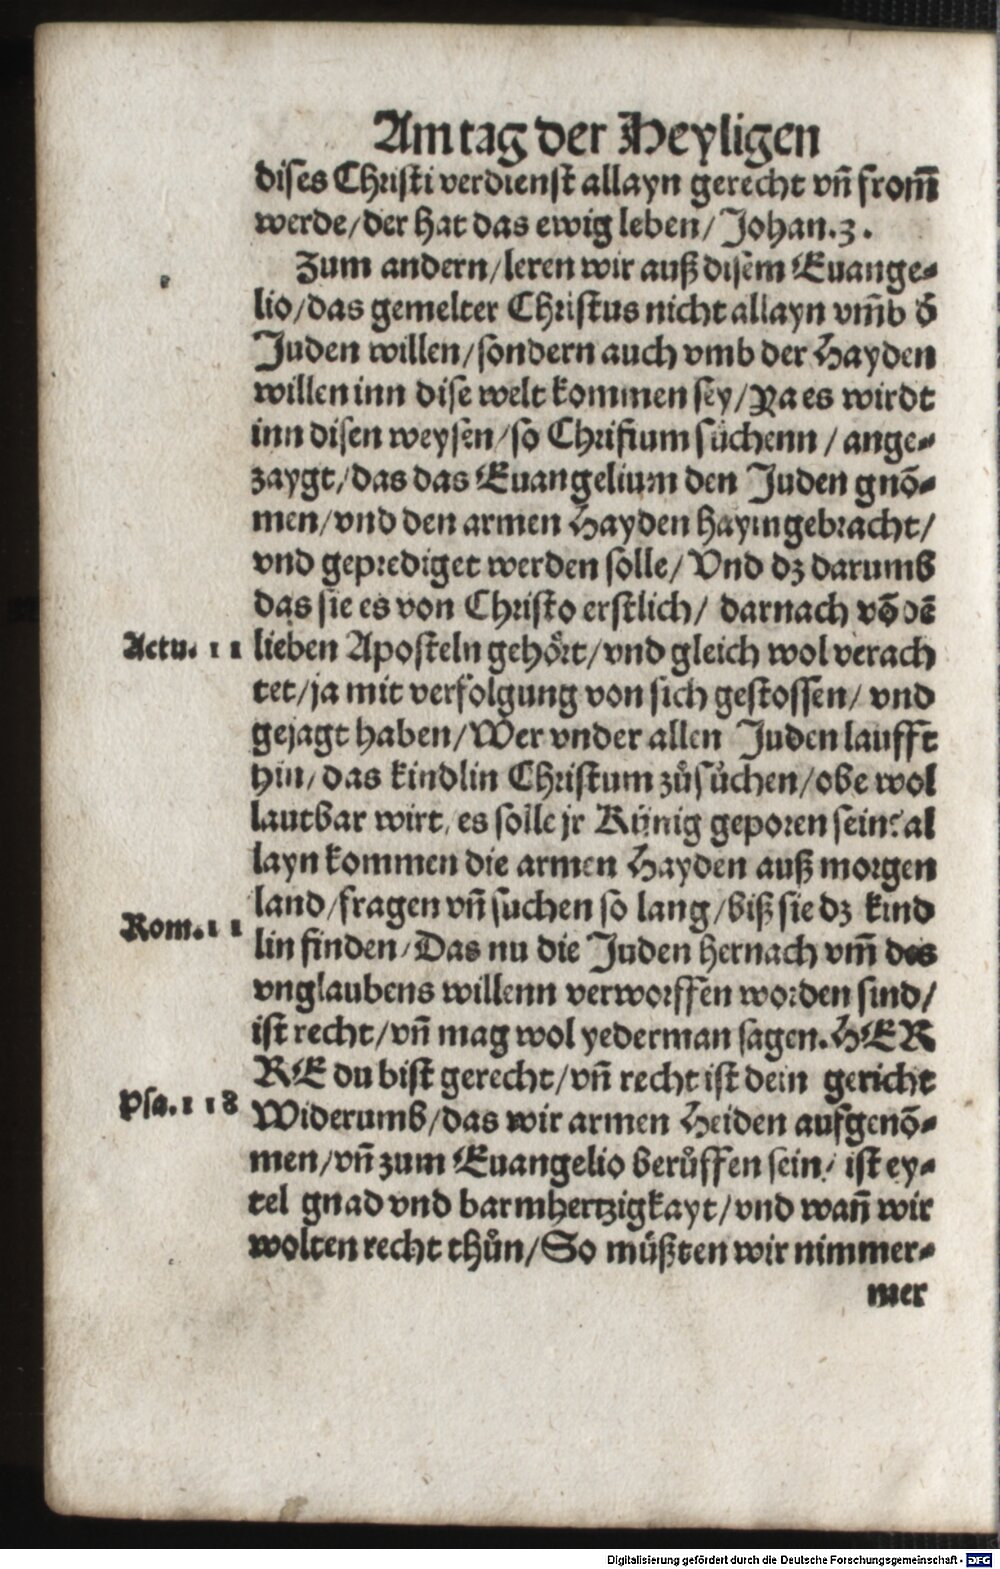 Am tag der Heyligen
dises Christi verdienst allayn gerecht vn̄ from̄
werde/der hat das ewig leben/Johan.3.
Zum andern/leren wir auß disem Euange-
lio/das gemelter Christus nicht allayn vm̄b d̄
Juden willen/sondern auch vmb der Hayden
willen inn dise welt kommen sey/Ya es wirdt
inn disen weysen/so Christum sůchenn/ange-
zaygt/das das Euangelium den Juden gnō-
men/vnd den armen Hayden haymgebracht/
vnd geprediget werden solle/Vnd dz darumb
das sie es von Christo erstlich/darnach vō dē
Actu. 11 lieben Aposteln gehört/vnd gleich wol verach
tet/ja mit verfolgung von sich gestossen/vnd
gejagt haben/Wer vnder allen Juden laufft
hin/das kindlin Christum zůsůchen/obe wol
lautbar wirt/es solle jr Künig geporen sein?al
layn kommen die armen Hayden auß morgen
land/fragen vn̄ suchen so lang/biß sie dz kind
Rom. 11 lin finden/Das nu die Juden hernach vm̄ des
vnglaubens willenn verworffen worden sind/
ist recht/vn̄ mag wol yederman sagen.HER
RE du bist gerecht/vn̄ recht ist dein gericht
Psa. 118 Widerumb/das wir armen Heiden aufgenō-
men/vn̄ zum Euangelio berůffen sein/ist ey-
tel gnad vnd barmhertzigkayt/vnd wan̄ wir
wolten recht thůn/So müßten wir nimmer-
mer
Digitalisierung gefördert durch die Deutsche Forschungsgemeinschaft - DFG